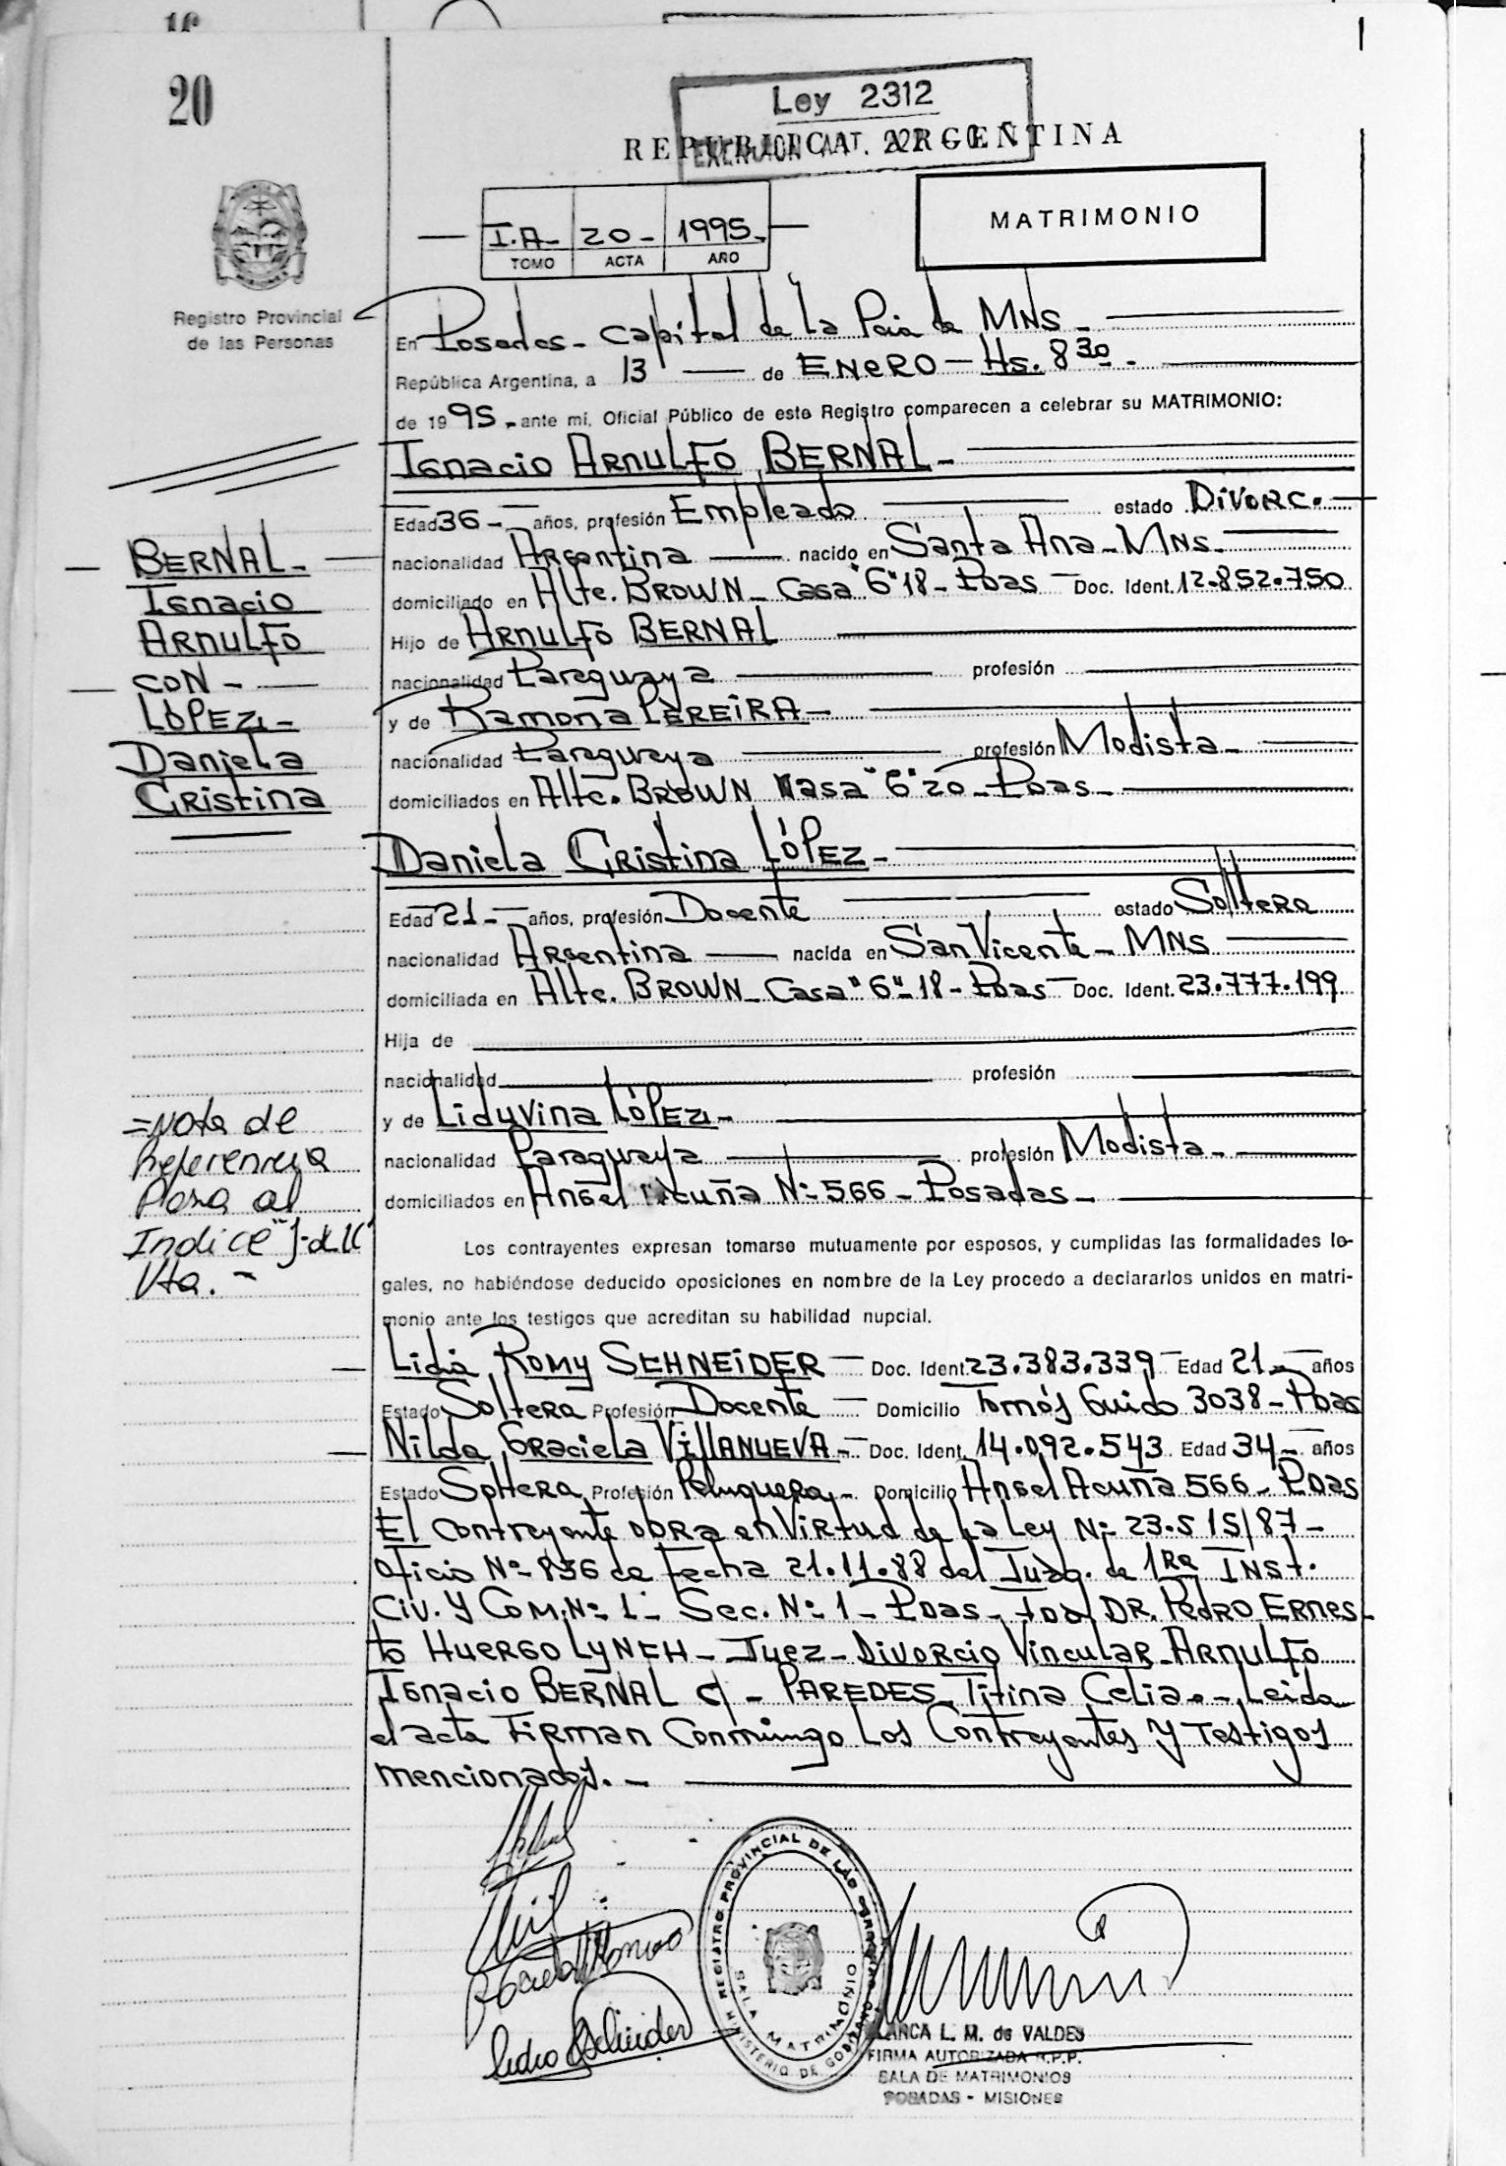 20
Ley 2312
REPUBLICA ARGENTINA
EXENCION ART.
I.A- 20- 1995-
TOMO ACTA AÑO
MATRIMONIO
Registro Provincial
de las Personas
En Posadas - Capital de la Pcia de MNS -
República Argentina, a 13 de ENERO - Hs. 8 30 -
de 1995 - ante mí, Oficial Público de este Registro comparecen a celebrar su MATRIMONIO:
Ignacio ARNULFO BERNAL -
Edad 36 - años, profesión Empleado estado DIVORC.
nacionalidad Argentina nacido en Santa Ana - MNS -
domiciliado en Alte. BROWN - Casa "6" 18 - Pdas - Doc. Ident. 12.852.750
Hijo de ARNULFO BERNAL
nacionalidad Paraguaya profesión
y de Ramona PEREIRA -
nacionalidad Paraguaya profesión Modista -
domiciliados en Alte. BROWN Casa "6" 20 - Pdas -
BERNAL -
Ignacio
ARNULFO
CON -
LÓPEZ -
Daniela
Cristina
Daniela Cristina LÓPEZ -
Edad 21 - años, profesión Docente estado Soltera
nacionalidad Argentina nacida en San Vicente - MNS
domiciliada en Alte. BROWN - Casa "6" - 18 - Pdas - Doc. Ident. 23.777.199
Hija de
nacionalidad profesión
y de Liduvina LÓPEZ -
nacionalidad Paraguaya profesión Modista -
domiciliados en Angel Acuña Nº 566 - Posadas -
= Nota de
Referencia
Pasa al
Indice "J"
Vta. -
Los contrayentes expresan tomarse mutuamente por esposos, y cumplidas las formalidades le-
gales, no habiéndose deducido oposiciones en nombre de la Ley procedo a declararlos unidos en matri-
monio ante los testigos que acreditan su habilidad nupcial.
Lidia ROMY SCHNEIDER - Doc. Ident. 23.383.339 - Edad 21 - años
Estado Soltera Profesión Docente - Domicilio Tomás Guido 3038 - Pdas
Nilda Graciela VILLANUEVA - Doc. Ident. 14.092.543 Edad 34 - años
Estado Soltera Profesión Peluquera - Domicilio Angel Acuña 566 - Pdas
El contrayente obra en virtud de la Ley Nº 23.515/87 -
Oficio Nº 836 de fecha 21.11.88 del Juzg. de 1Ra INST.
Civ. Y Com. Nº 1 - Sec. Nº 1 - Pdas - Fdo. DR. PEDRO ERNES-
to HUERGO LYNCH - Juez - Divorcio Vincular - ARNULFO
Ignacio BERNAL c/ - PAREDES, Titina Celia. - Leida
el acta Firman Conmigo Los Contrayentes Y Testigos
mencionados. -
REGISTRO PROVINCIAL DE LAS PERSONAS
SALA MATRIMONIO
MINISTERIO DE GOBIERNO
BLANCA L. M. de VALDES
FIRMA AUTORIZADA R.P.P.
SALA DE MATRIMONIOS
POSADAS - MISIONES